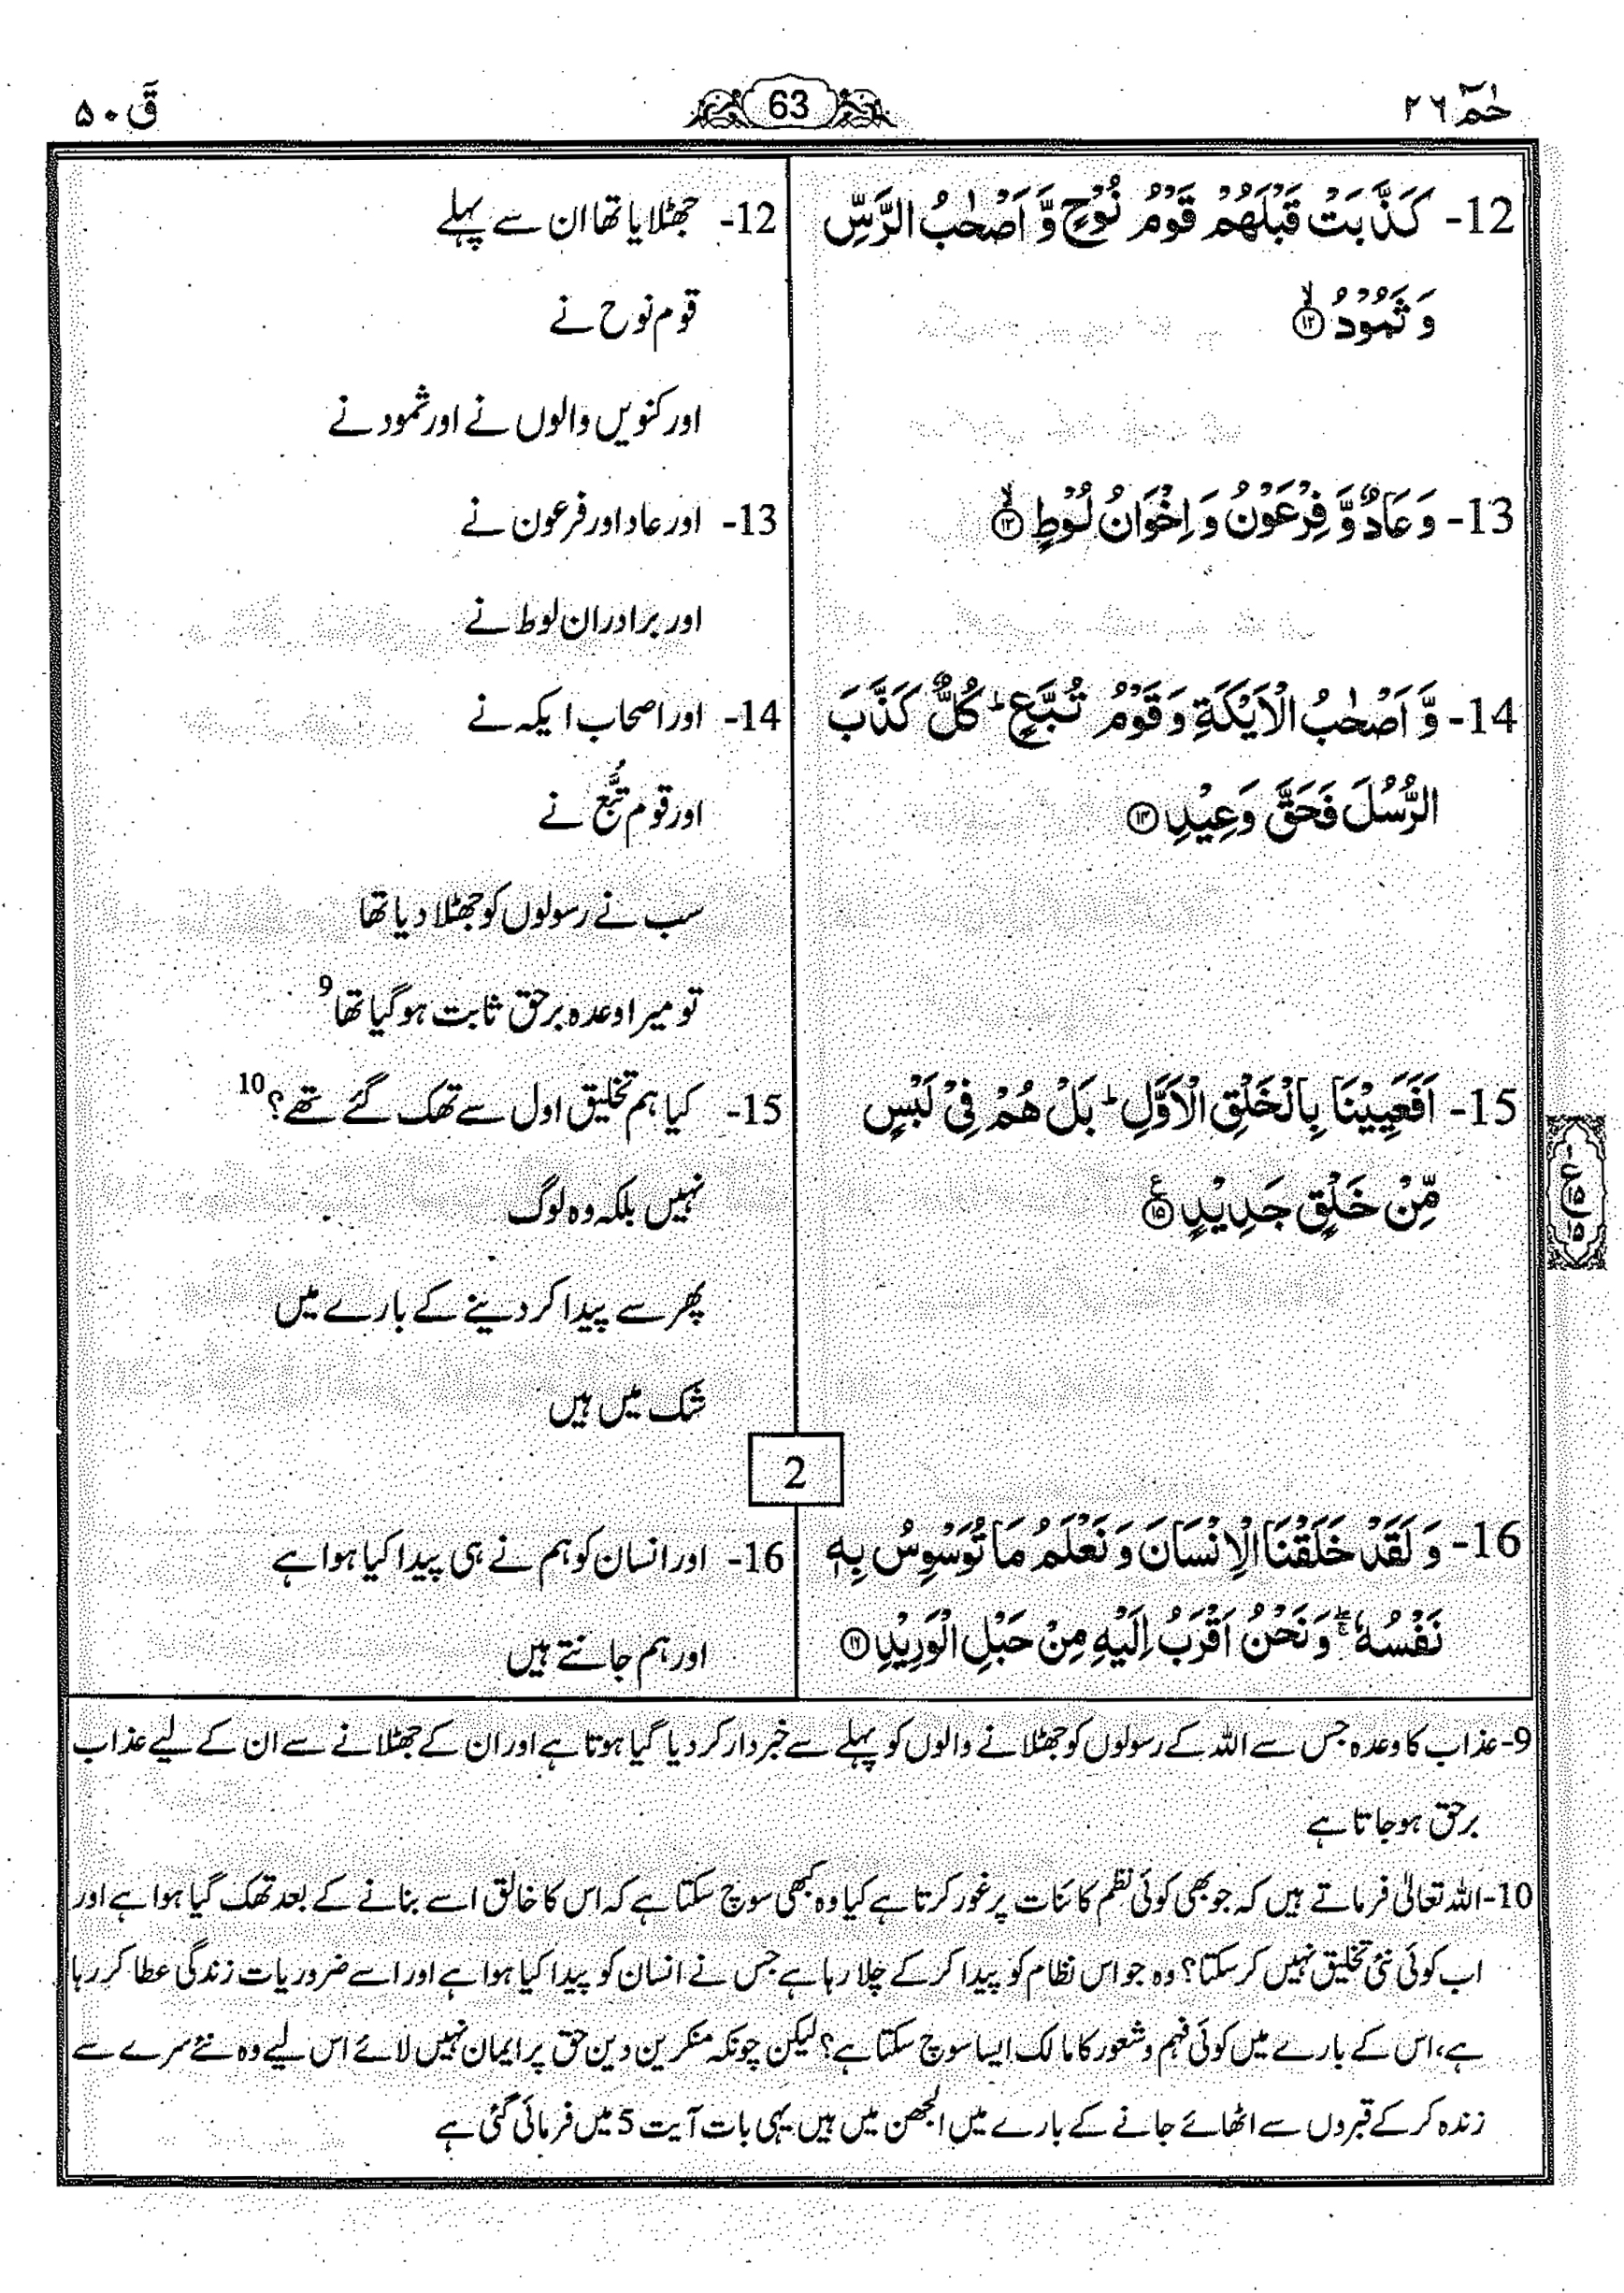 حٰمٓ ٢٦
63
قٓ ٥٠
12- كَذَّبَتْ قَبْلَهُمْ قَوْمُ نُوْحٍ وَّ اَصْحٰبُ الرَّسِّ
وَ ثَمُوْدُ ۙ﴿۱۲﴾
13- وَ عَادٌ وَّ فِرْعَوْنُ وَ اِخْوَانُ لُوْطٍ ۙ﴿۱۳﴾
14- وَّ اَصْحٰبُ الْاَيْكَةِ وَ قَوْمُ تُبَّعٍ ؕ كُلٌّ كَذَّبَ
الرُّسُلَ فَحَقَّ وَعِيْدِ ﴿۱۴﴾
15- اَفَعَيِيْنَا بِالْخَلْقِ الْاَوَّلِ ؕ بَلْ هُمْ فِيْ لَبْسٍ
مِّنْ خَلْقٍ جَدِيْدٍ ﴿۱۵﴾ ع
16- وَ لَقَدْ خَلَقْنَا الْاِنْسَانَ وَ نَعْلَمُ مَا تُوَسْوِسُ بِهٖ
نَفْسُهٗ ۖۚ وَ نَحْنُ اَقْرَبُ اِلَيْهِ مِنْ حَبْلِ الْوَرِيْدِ ﴿۱۶﴾
12- جھٹلایا تھا ان سے پہلے
قوم نوح نے
اور کنویں والوں نے اور ثمود نے
13- اور عاد اور فرعون نے
اور برادران لوط نے
14- اور اصحاب ایکہ نے
اور قوم تُبَّع نے
سب نے رسولوں کو جھٹلا دیا تھا
تو میرا وعدہ برحق ثابت ہو گیا تھا 9
15- کیا ہم تخلیق اول سے تھک گئے تھے؟ 10
نہیں بلکہ وہ لوگ
پھر سے پیدا کر دینے کے بارے میں
شک میں ہیں
2
16- اور انسان کو ہم نے ہی پیدا کیا ہوا ہے
اور ہم جانتے ہیں
9- عذاب کا وعدہ جس سے اللہ کے رسولوں کو جھٹلانے والوں کو پہلے سے خبردار کر دیا گیا ہوتا ہے اور ان کے جھٹلانے سے ان کے لیے عذاب
برحق ہو جاتا ہے
10- اللہ تعالیٰ فرماتے ہیں کہ جو بھی کوئی نظم کائنات پر غور کرتا ہے کیا وہ کبھی سوچ سکتا ہے کہ اس کا خالق اسے بنانے کے بعد تھک گیا ہوا ہے اور
اب کوئی نئی تخلیق نہیں کر سکتا؟ وہ جو اس نظام کو پیدا کر کے چلا رہا ہے جس نے انسان کو پیدا کیا ہوا ہے اور اسے ضروریات زندگی عطا کر رہا
ہے، اس کے بارے میں کوئی فہم و شعور کا مالک ایسا سوچ سکتا ہے؟ لیکن چونکہ منکرین دین حق پر ایمان نہیں لائے اس لیے وہ نئے سرے سے
زندہ کر کے قبروں سے اٹھائے جانے کے بارے میں الجھن میں ہیں یہی بات آیت 5 میں فرمائی گئی ہے